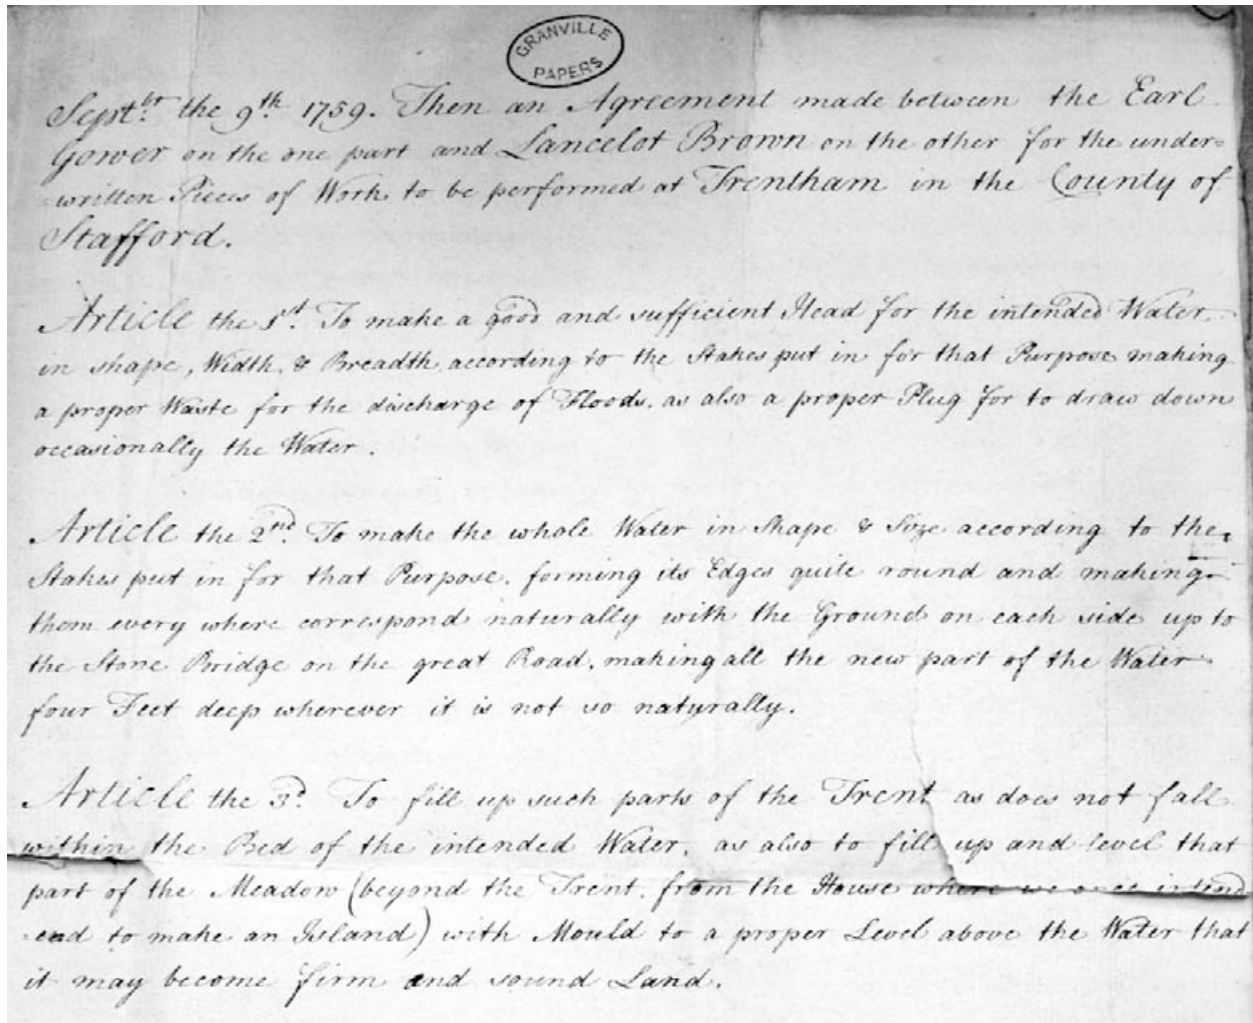 GRANVILLE
PAPERS
Septbr. the 9th. 1759. Then an Agreement made between the Earl
Gower on the one part and Lancelot Brown on the other for the under=
written Pieces of Work to be performed at Trentham in the County of
Stafford.
Article the 1st. To make a good and sufficient Head for the intended Water
in shape, Width, & Breadth according to the Stakes put in for that Purpose making
a proper Waste for the discharge of Floods. as also a proper Plug for to draw down
occasionally the Water.
Article the 2nd. To make the whole Water in Shape & Size according to the
Stakes put in for that Purpose. forming its Edges quite round and making
them every where correspond naturally with the Ground on each side up to
the Stone Bridge on the great Road. making all the new part of the Water
four Feet deep wherever it is not so naturally.
Article the 3d. To fill up such parts of the Trent as does not fall
within the Bed of the intended Water, as also to fill up and level that
part of the Meadow (beyond the Trent. from the House where we once intend
=ed to make an Island) with Mould to a proper Level above the Water that
it may become firm and sound Land.